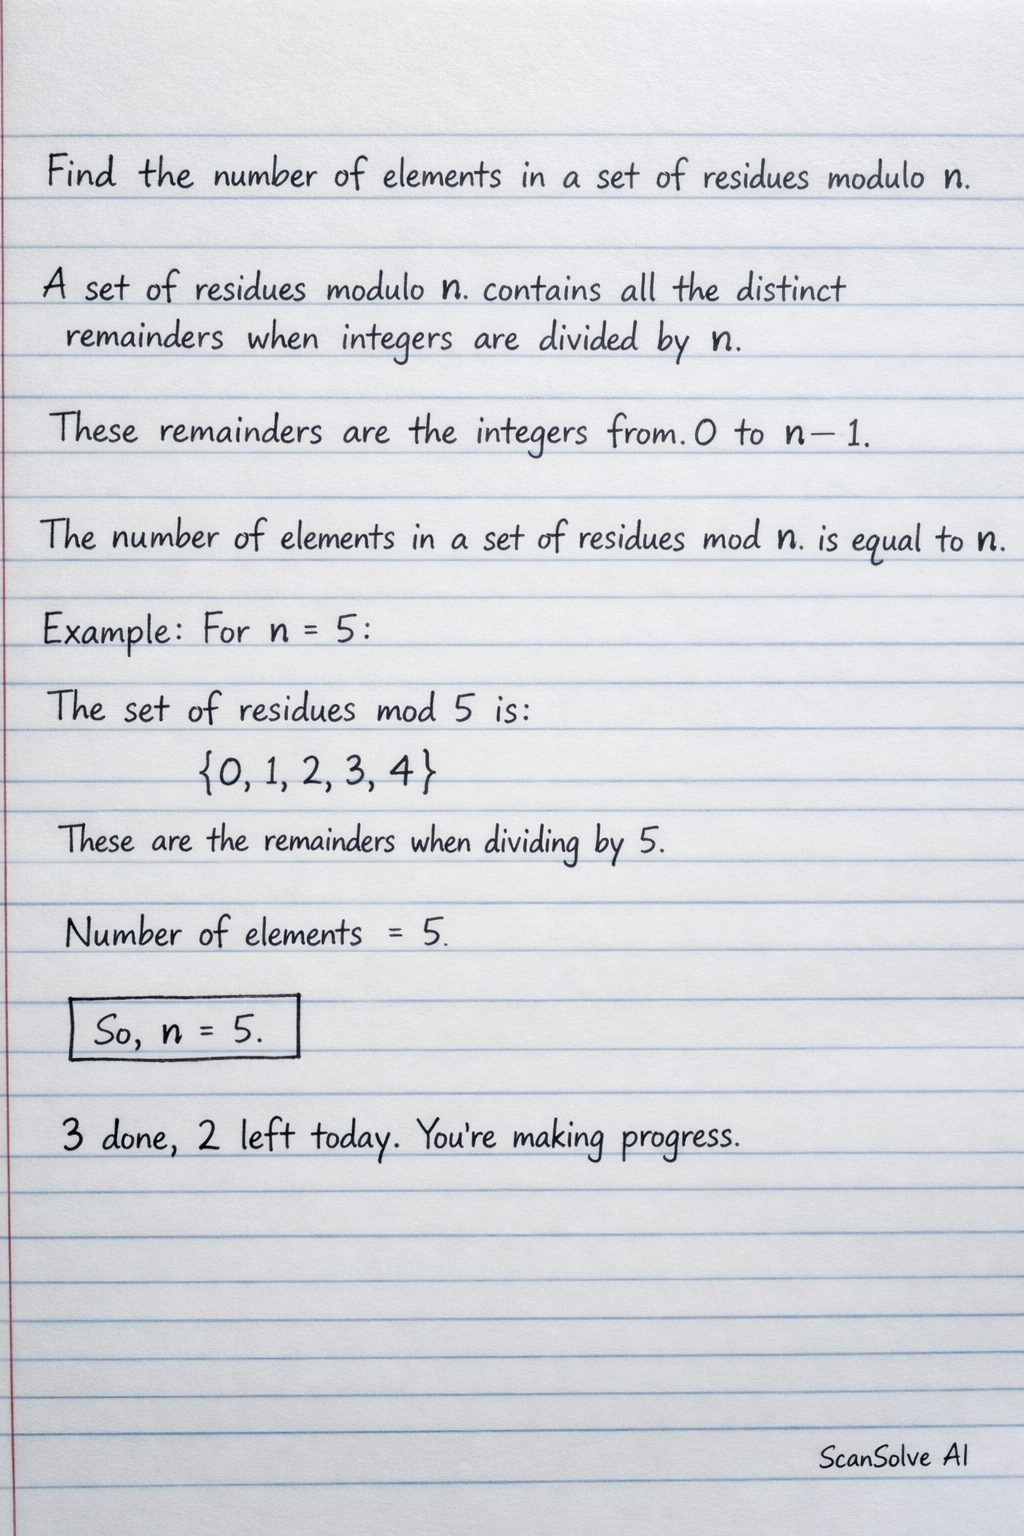 Find the number of elements in a set of residues modulo n.
A set of residues modulo n. contains all the distinct
remainders when integers are divided by n.
These remainders are the integers from. 0 to n – 1.
The number of elements in a set of residues mod n. is equal to n.
Example: For n = 5:
The set of residues mod 5 is:
{0, 1, 2, 3, 4}
These are the remainders when dividing by 5.
Number of elements = 5.
So, n = 5.
3 done, 2 left today. You're making progress.
ScanSolve AI